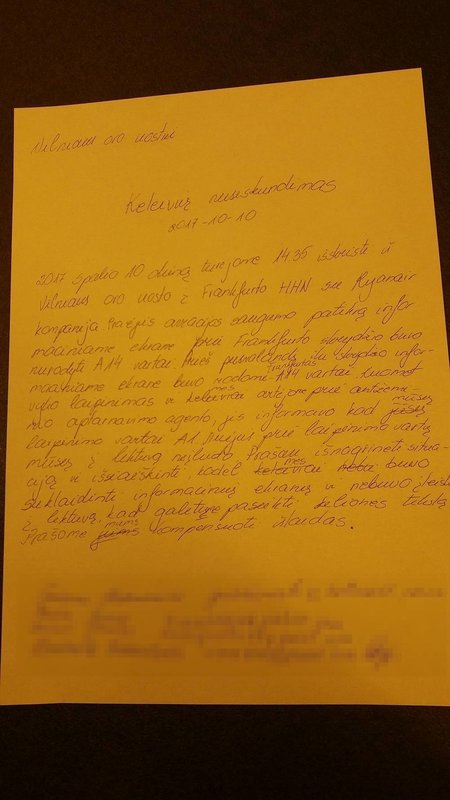 Vilniaus oro uostui
Keleivių nusiskundimas
2017-10-10
2017 spalio 10 dieną turėjome 14.35 išskristi iš
Vilniaus oro uosto į Frankfurto HHN su Ryanair
kompanija. Praėjus aviacijos saugumo patikrą infor
maciniame ekrane prie Frankfurto skrydžio buvo
nurodyti A14 vartai. Prieš pusvalandį iki skrydžio infor-
maciniame ekrane buvo rodomi Frankfurtas A14 vartai kuomet
vyko laipinimas ir keleiviai mes priėjome prie antžemi-
nio aptarnavimo agento, jis informavo kad mūsų
laipinimo vartai A1. Nuėjus prie laipinimo vartų
mūsų į lėktuvą neįleido. Prašau išnagrinėti situa-
ciją ir išsiaiškinti, kodėl keleiviai mes buvo
suklaidinti informacinių ekranų ir nebuvo įleisti
į lėktuvą, kad galėtume pasiekti, kelionės tikslą.
Prašome mums kompensuoti išlaidas.